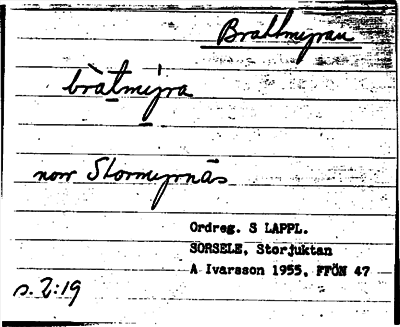 Brattmyran
bràt̲mýra
norr Stormyrnäs
Ordreg. S LAPPL.
SORSELE, Storjuktan
A Ivarsson 1955, FFÖN 47
s. 2:19